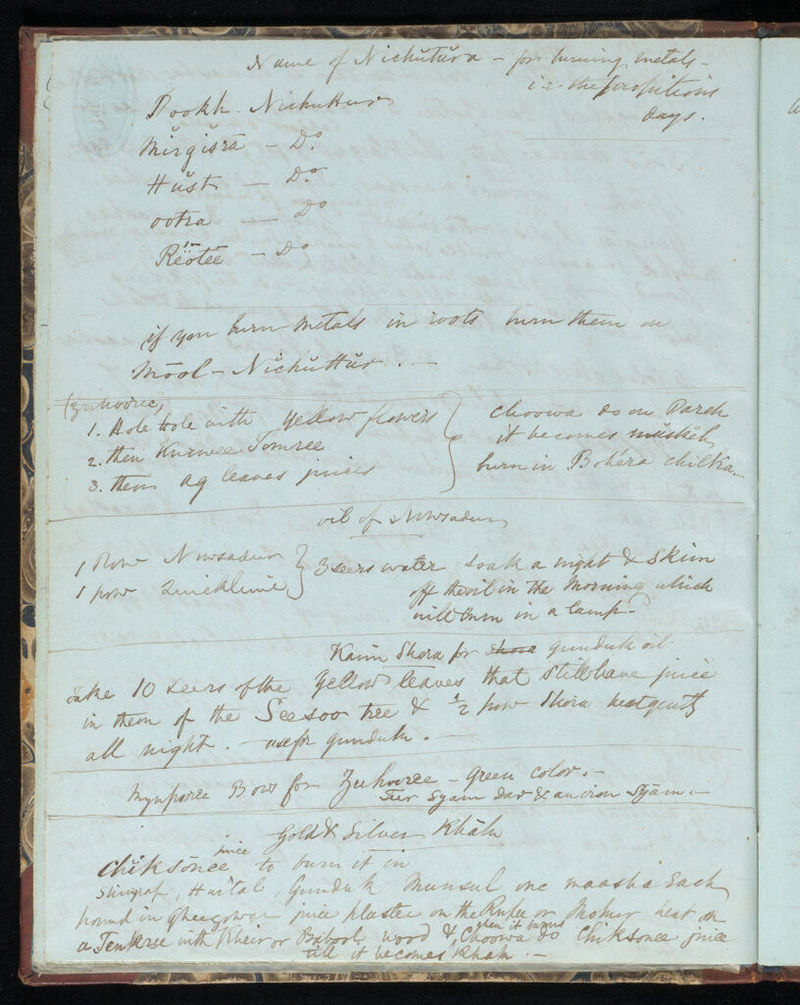 Name of Nichŭtŭra - for burning metals -
i.e. the propitious
days.
Pookh. Nichuttur
Mirgisra - Do.
Hŭst - Do.
ootra - Do
Reotee - Do
if you burn metals in roots burn them on
Mool - Nichŭttŭr. -
(Zuhooree,
1. Hole hole with yellow flowers
2. then Kurwee Tomree
3. then ag leaves juices
Choowa do on Parch
it becomes mŭskĕl,
burn in Bohéra chilka.
oil of Nowsadur
1 pow Nowsadur
1 pow Quicklime
3 seers water soak a night & skim
off the oil in the morning which
will burn in a lamp.
Kaim Shora for gunduk oil
Take 10 seers of the yellow leaves that still have juice
in them of the Seesoo tree & 1/2 pow Shora heat gently
all night. - use for gunduk. -
Mynporee Bows for Zuhooree - Green color. -
Tur Syam dar & an iron Syām -
Gold & Silver Khāk
Chiksonee juice to burn it in
Shingraf, Hurtal, Gunduk Munsul one maasha Each
pound in Gheegowar juice plaster on the Rupee or Mohur heat on
a Tenkree with Kheir or Babool wood & when it burns Choowa do Chiksonee juice
till it becomes Khak. -